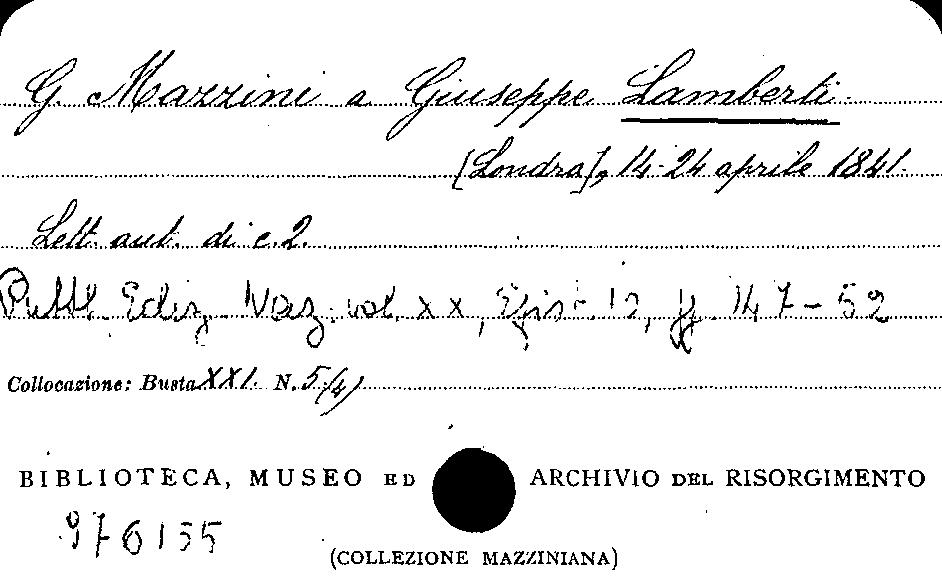 G. Mazzini a Giuseppe Lamberti
[Londra], 14-24 aprile 1841.
Lett. aut. di c. 2.
Pubbl. Ediz. Naz. vol. XX, Epist. 10, pp. 147-52
Collocazione: Busta XXI. N. 5/4)
BIBLIOTECA, MUSEO ED ARCHIVIO DEL RISORGIMENTO
976155
(COLLEZIONE MAZZINIANA)